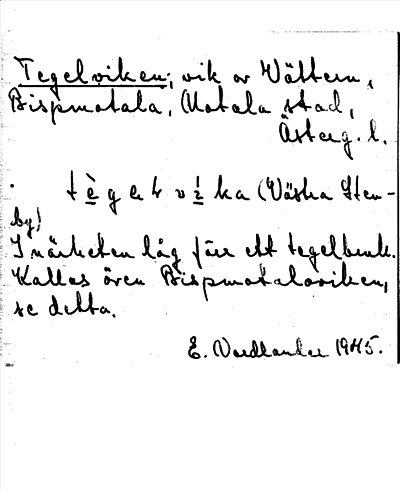 Tegelviken, vik av Vättern,
Bispmotala, Motala stad,
Österg. l.
tègelvi̱ka (Västra Sten-
by)
I närheten låg förr ett tegelbruk.
Kallas även Bispmotalaviken,
se detta.
E. Nordlander 1945.